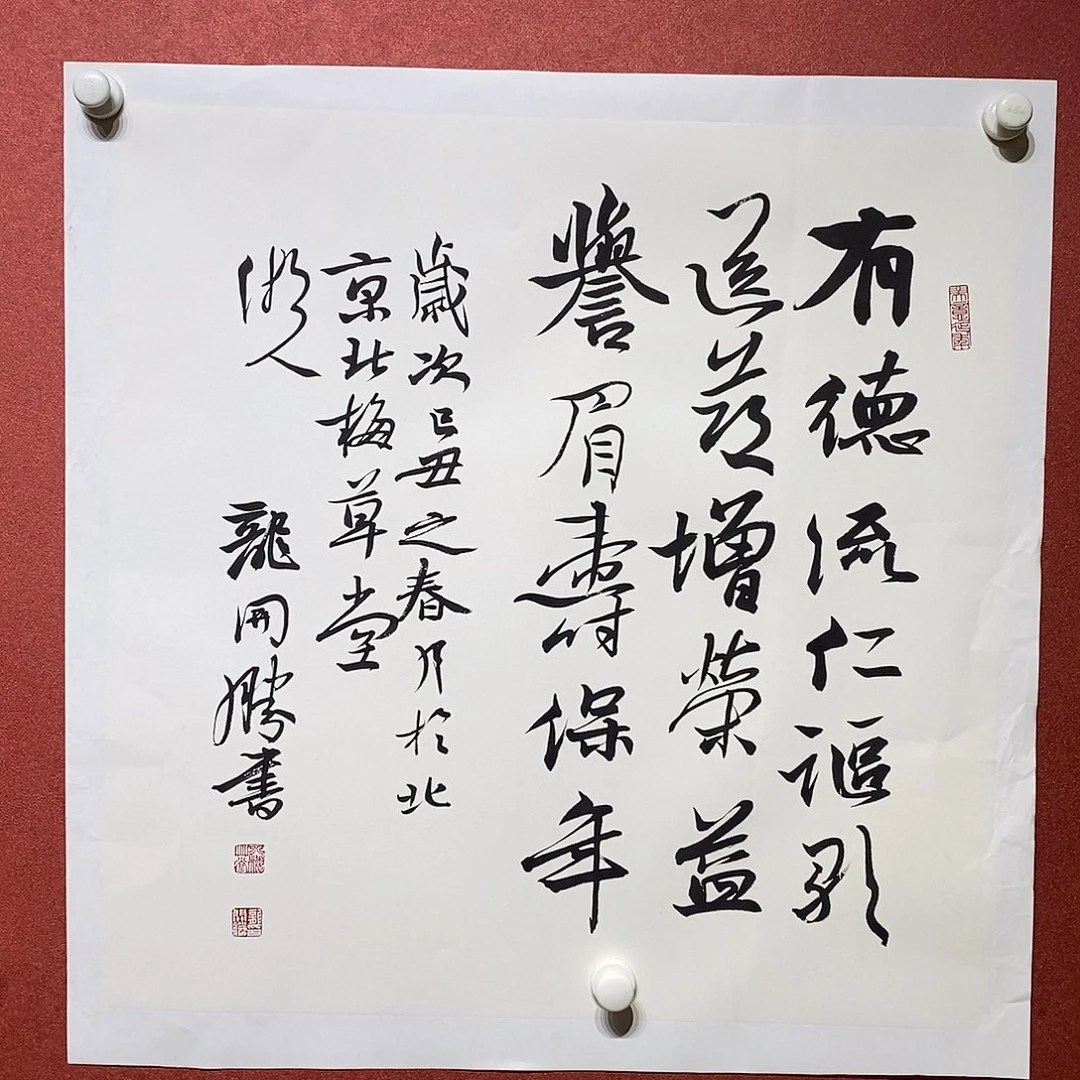 有德流仁謳歌
增榮益
譽眉壽保年
歲次己丑之春月於北
京北梅草堂
人 龍開勝書